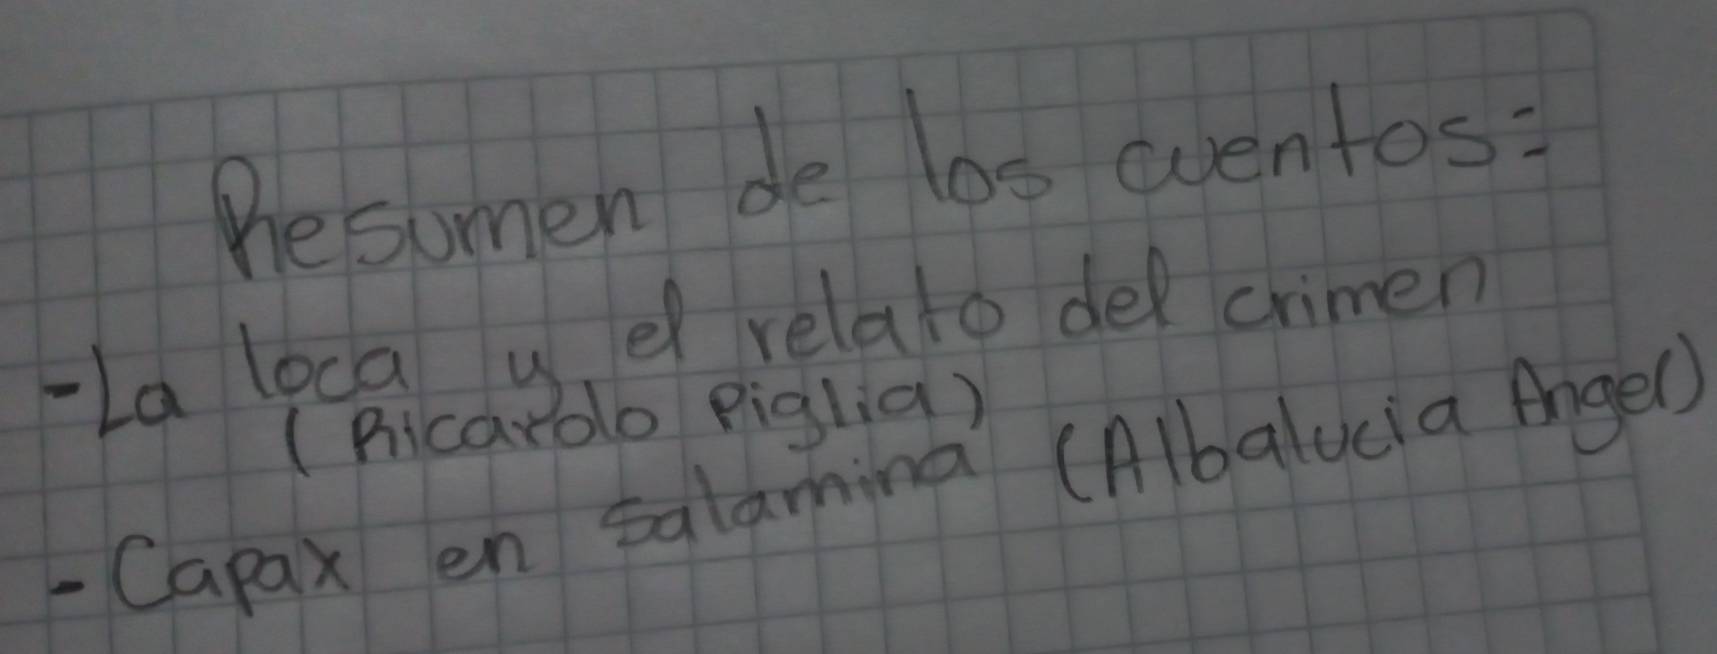 Resumen de los cuentos:
-La loca y el relato del crimen
(Ricardo Piglia)
-Capax en salamina (Albalucia Angel)